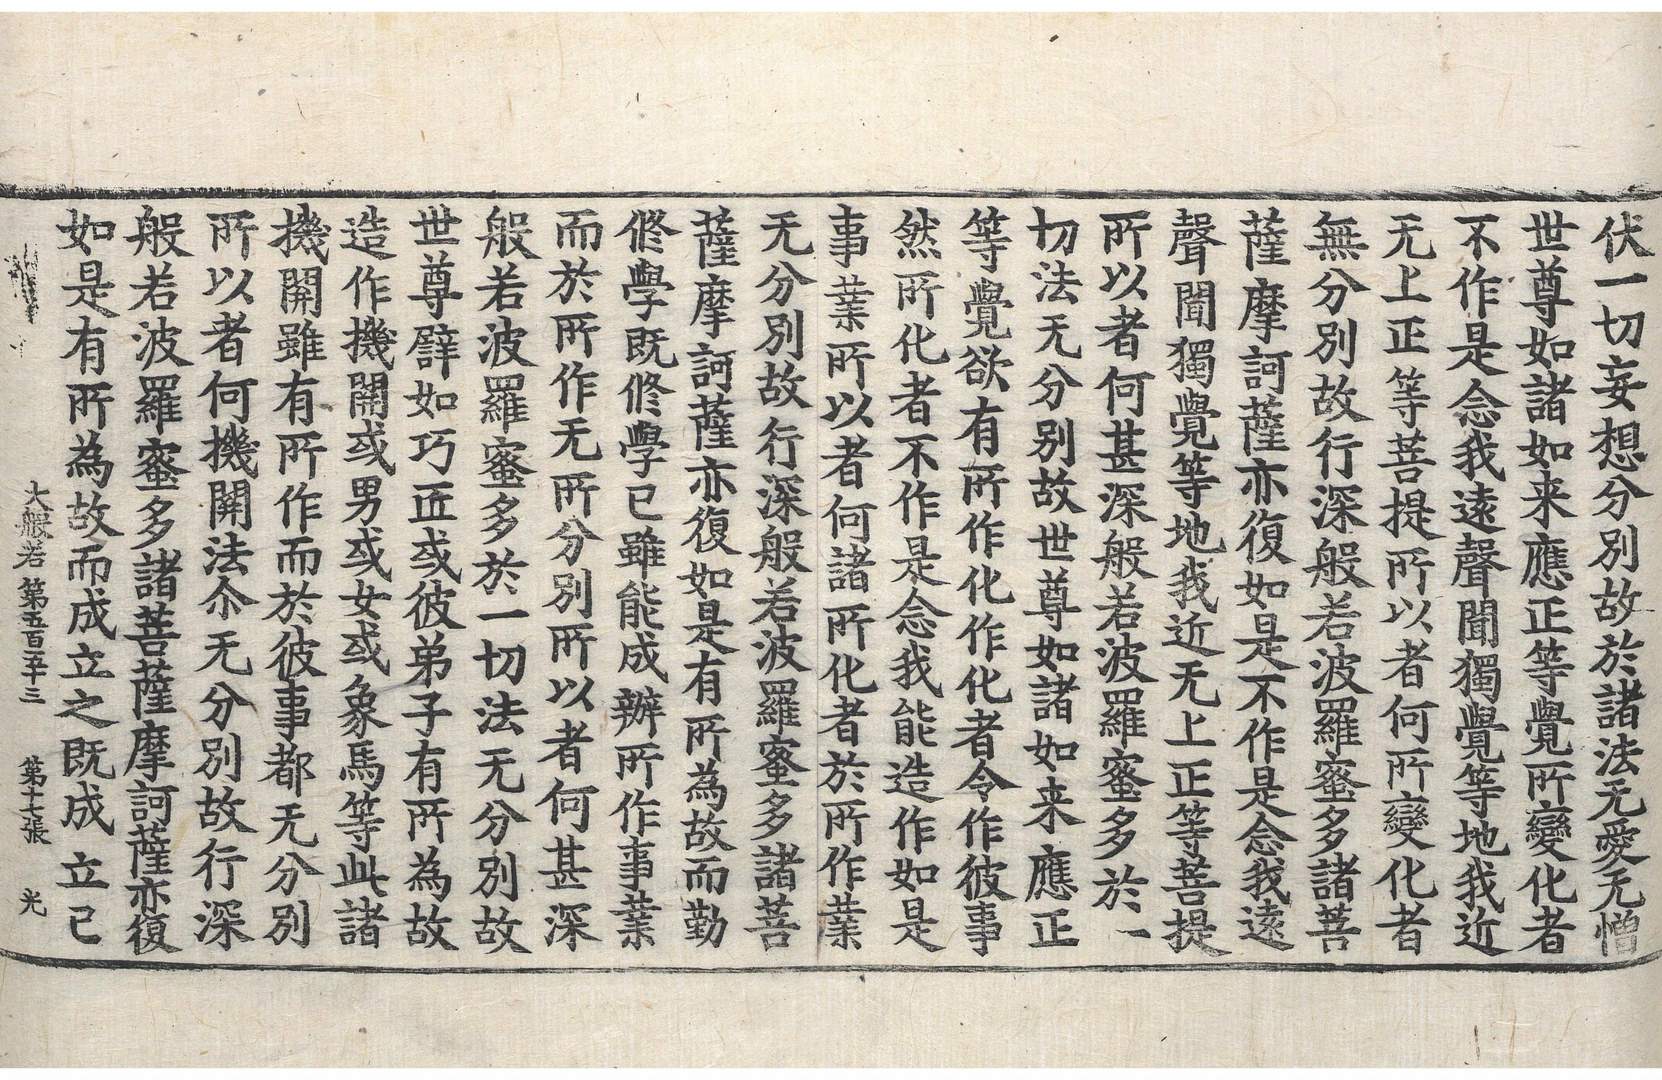 伏一切妄想分別故於諸法无愛无憎
世尊如諸如来應正等覺所變化者
不作是念我遠聲聞獨覺等地我近
无上正等菩提所以者何所變化者
無分別故行深般若波羅蜜多諸菩
薩摩訶薩亦復如是不作是念我遠
聲聞獨覺等地我近无上正等菩提
所以者何甚深般若波羅蜜多於一
切法无分別故世尊如諸如来應正
等覺欲有所作化作化者令作彼事
然所化者不作是念我能造作如是
事業所以者何諸所化者於所作業
无分別故行深般若波羅蜜多諸菩
薩摩訶薩亦復如是有所為故而勤
修學既修學已雖能成辦所作事業
而於所作无所分別所以者何甚深
般若波羅蜜多於一切法无分別故
世尊譬如巧匠或彼弟子有所為故
造作機關或男或女或象馬等此諸
機關雖有所作而於彼事都无分別
所以者何機關法尒无分別故行深
般若波羅蜜多諸菩薩摩訶薩亦復
如是有所為故而成立之既成立已
大般若 第五百五十三 第十七張 光